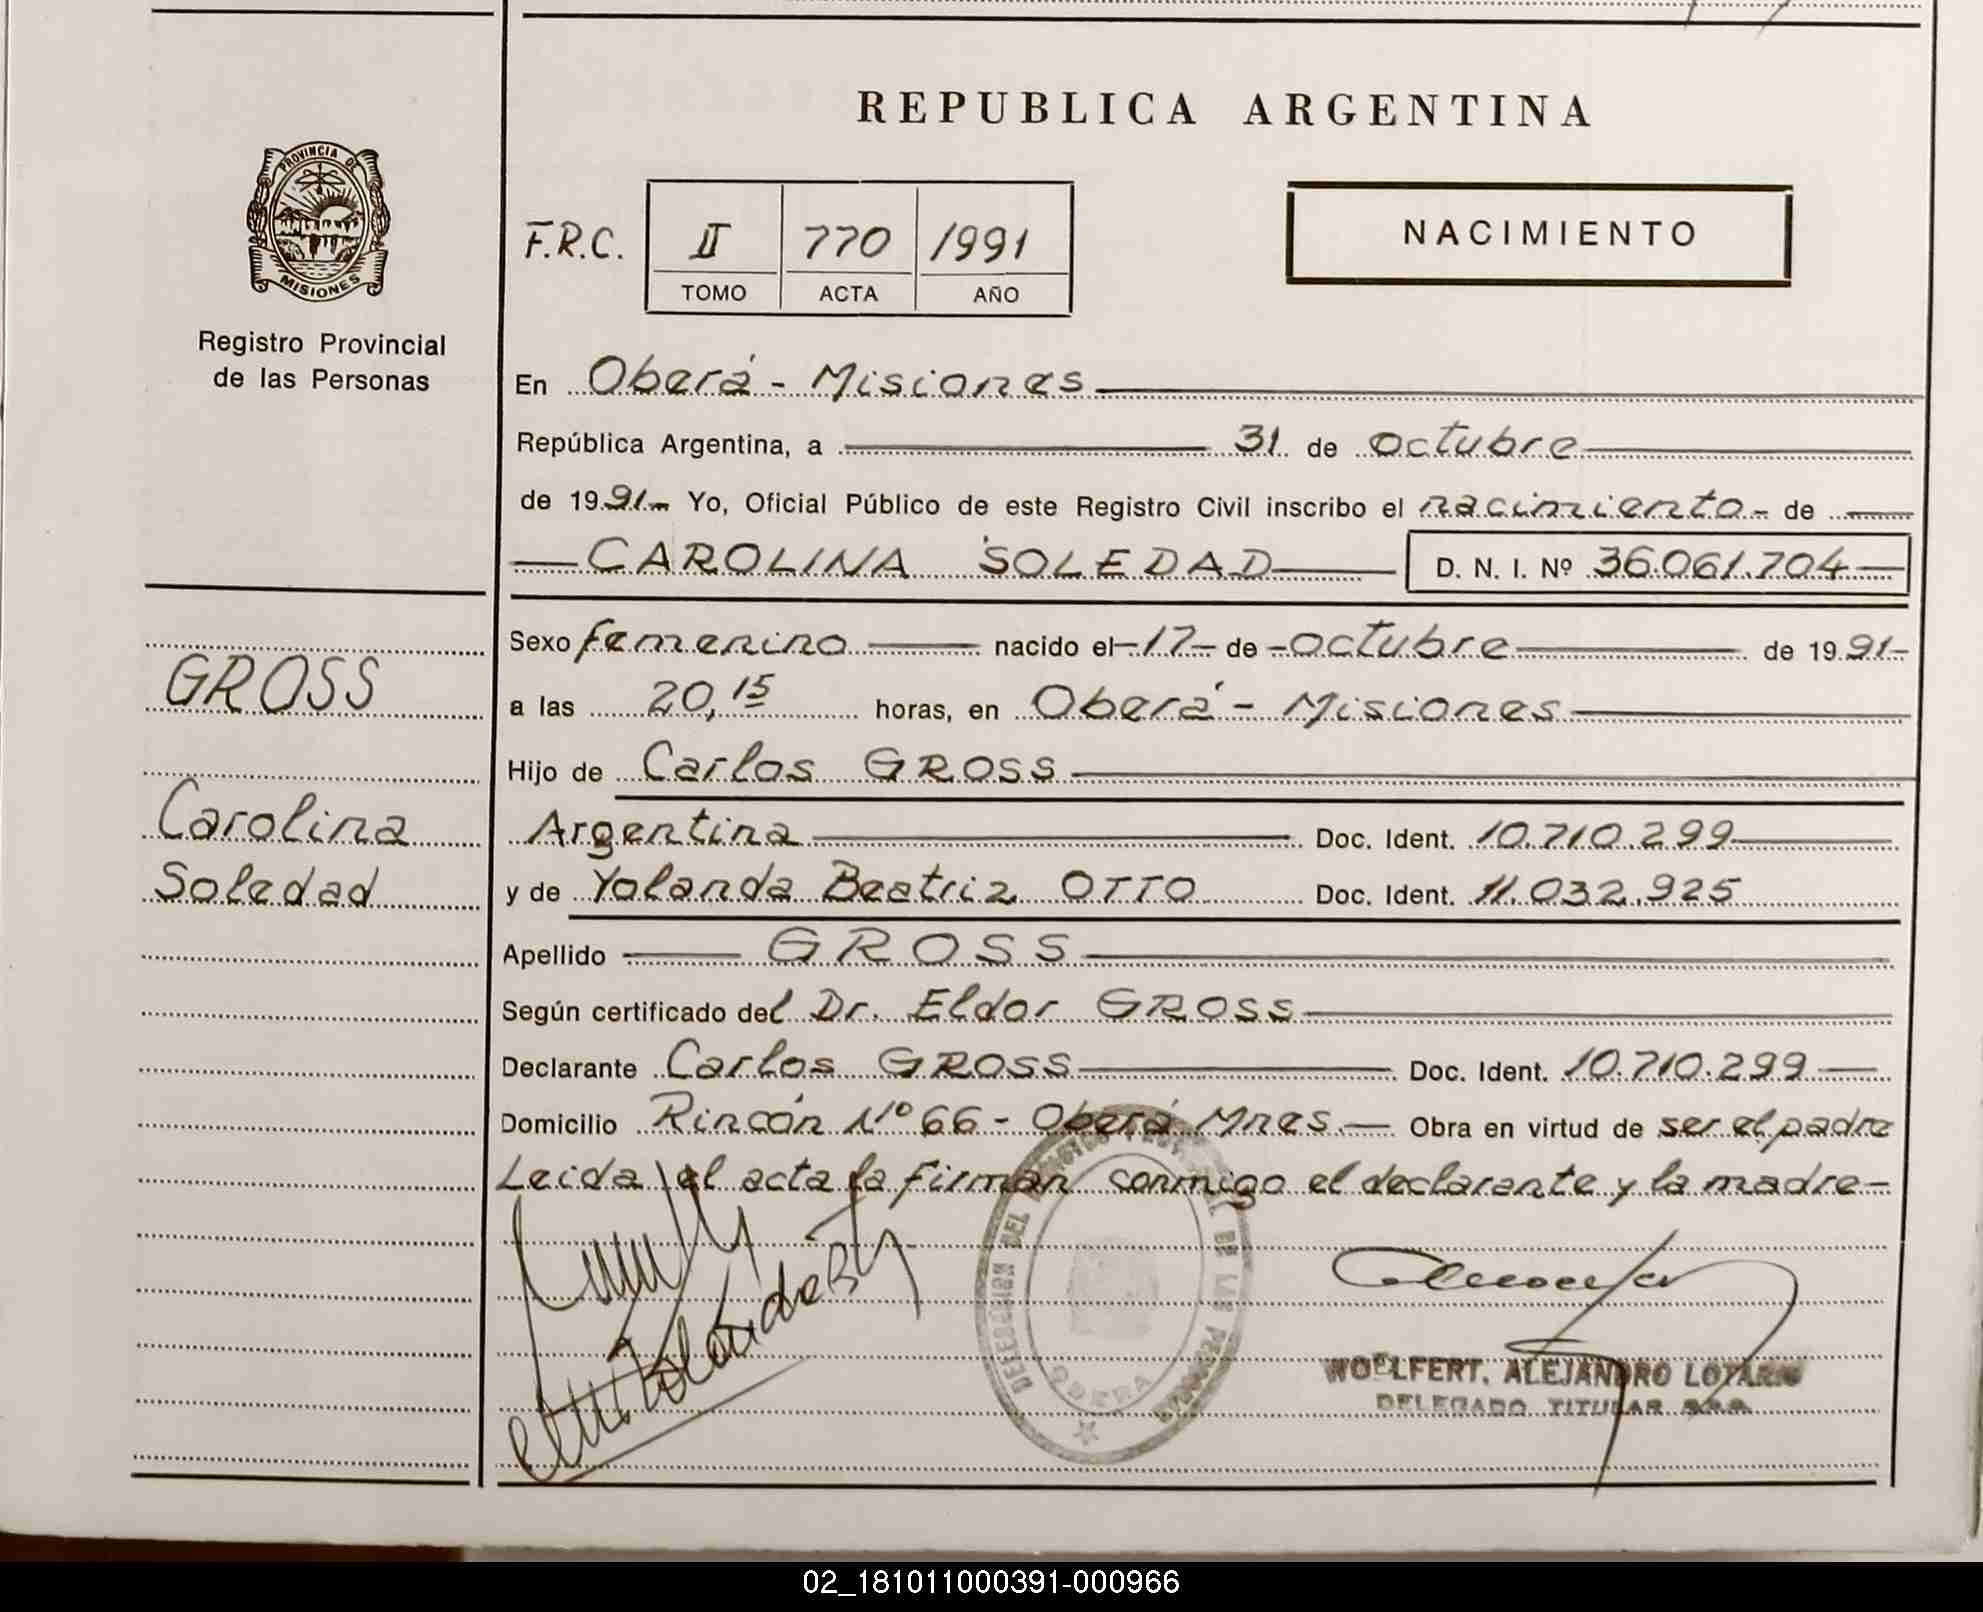 REPUBLICA ARGENTINA
PROVINCIA DE
MISIONES
Registro Provincial
de las Personas
F.R.C. II 770 1991
TOMO ACTA AÑO
NACIMIENTO
En Oberá - Misiones
República Argentina, a 31 de octubre
de 1991.- Yo, Oficial Público de este Registro Civil inscribo el nacimiento - de
CAROLINA SOLEDAD D. N. I. Nº 36.061.704
GROSS
Carolina
Soledad
Sexo femenino nacido el -17- de -octubre de 1991-
a las 20,15 horas, en Oberá - Misiones
Hijo de Carlos GROSS
Argentina Doc. Ident. 10.710.299
y de Yolanda Beatriz OTTO Doc. Ident. 11.032.925
Apellido GROSS
Según certificado del Dr. Eldor GROSS
Declarante Carlos GROSS Doc. Ident. 10.710.299
Domicilio Rincón Nº 66 - Oberá Mnes. Obra en virtud de ser el padre
Leida el acta la firman conmigo el declarante y la madre-
DEL DE LAS PERSONAS
OBERA
WOELFERT, ALEJANDRO LOTARIO
DELEGADO TITULAR
02_181011000391-000966